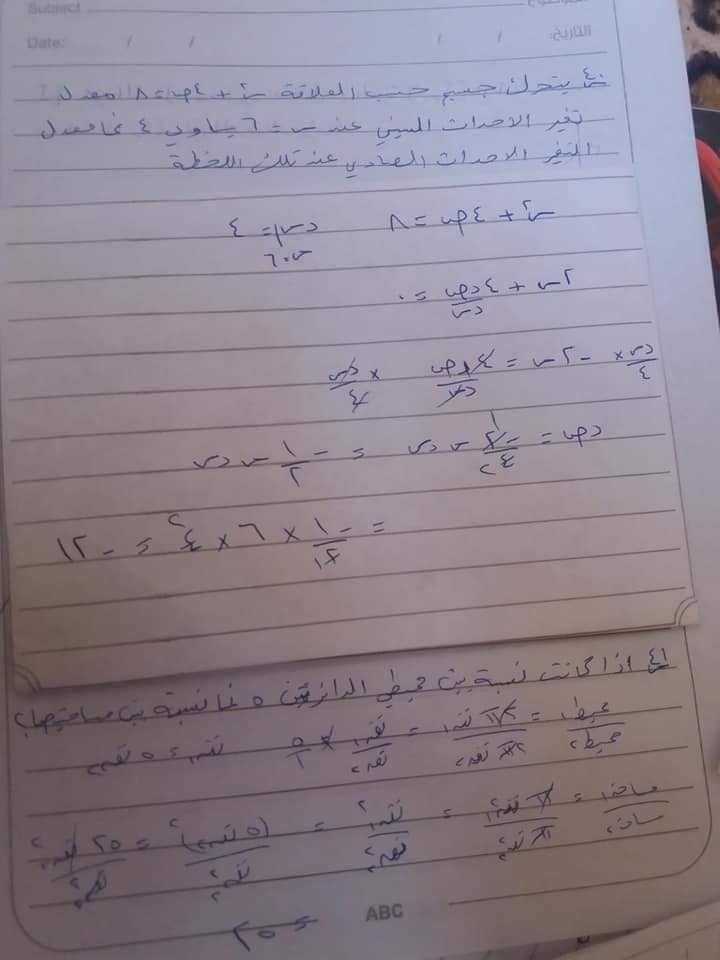 Subject
الموضوع
Date: / /
التاريخ: / /
يتحرك جسم حسب العلاقة س٢ + ٤ص = ٨ معدل
تغير الاحداث السيني عند س = ٦ يساوي ٤ فما معدل
التغير الاحداث الصادي عند تلك اللحظة
س٢ + ٤ص = ٨ دس = ٤
س = ٦
٢س + ٤ دص/دس = ٠
دس/٤ × -٢س = ٤دص/دس × دس/٤
دص = -٢/٤ س دس = -١/٢ س دس
= -١/٢ × ٦ × ٤ = -١٢
اذا كانت نسبة بين محيطي الدائرتين ٥ فما نسبة بين مساحتيهما؟
محيط١/محيط٢ = ٢π نق١/٢π نق٢ = نق١/نق٢ = ٥/١ نق١ = ٥ نق٢
مساحة١/مساحة٢ = π نق١٢/π نق٢٢ = نق١٢/نق٢٢ = (٥ نق٢)٢/نق٢٢ = ٢٥ نق٢٢/نق٢٢
= ٢٥
ABC